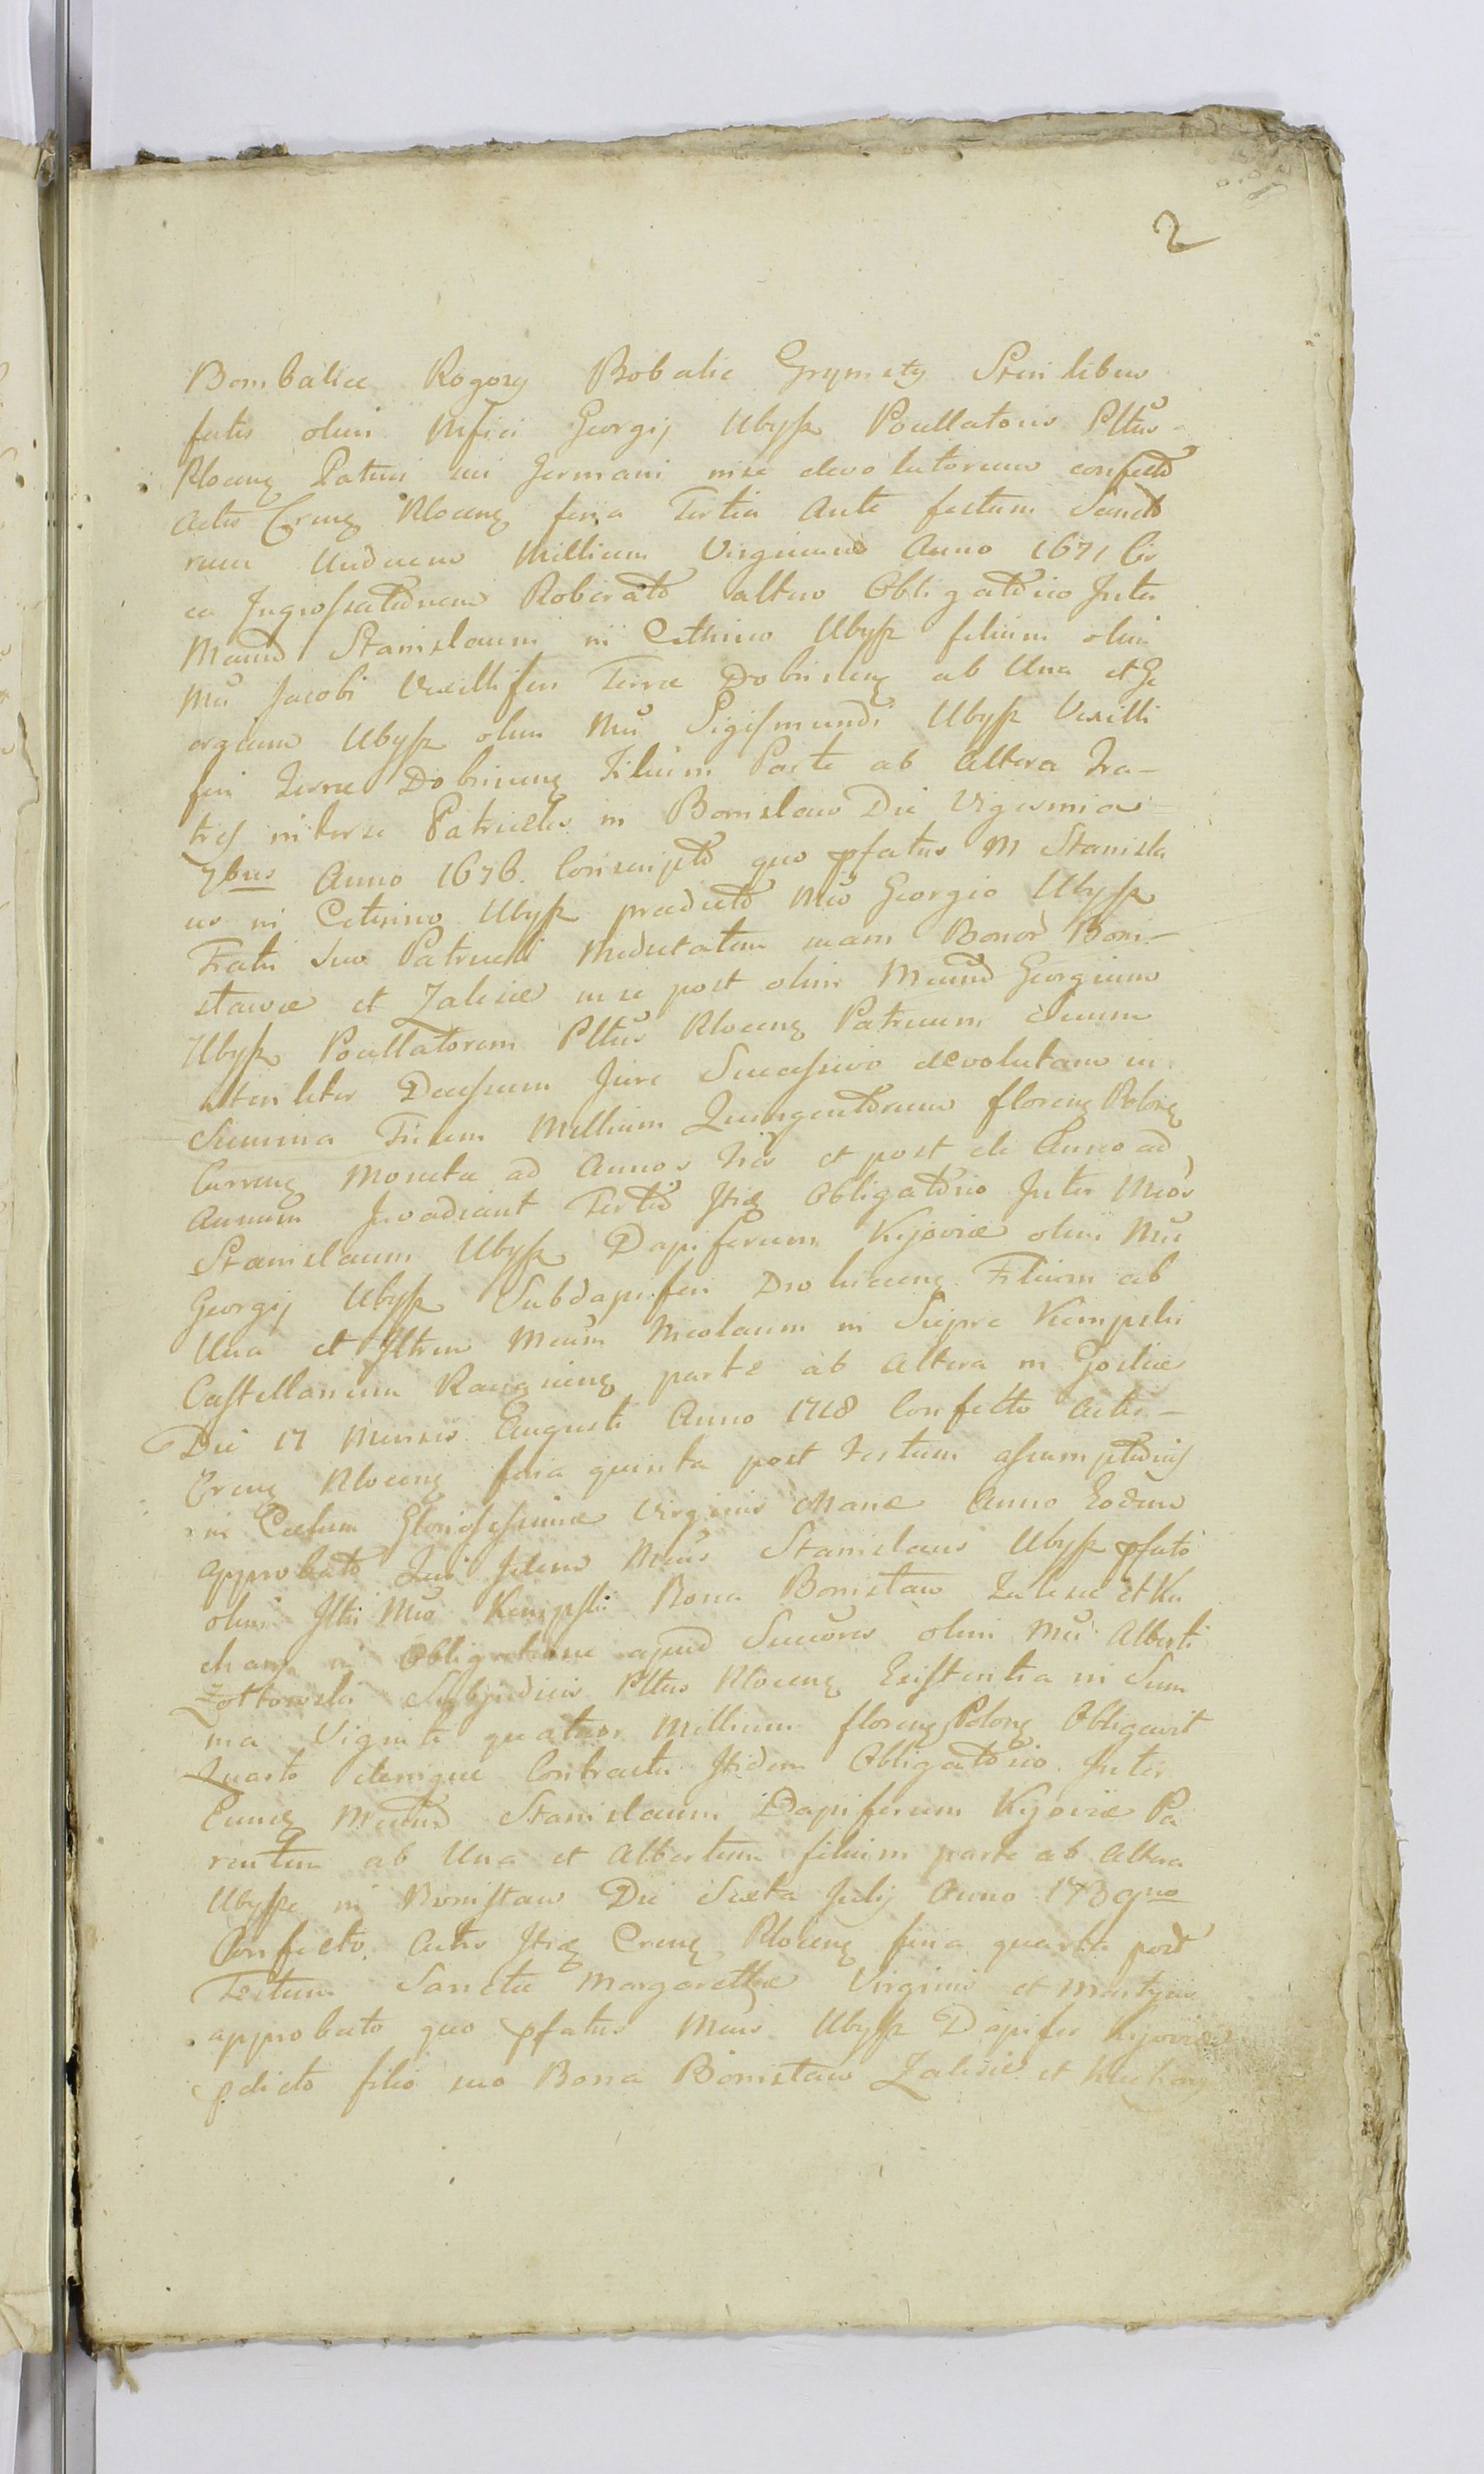 2
Bomballee Rogozy Bobalic Grymaty Sterilibus
fatis olim Mfici Georgij Ubysz Pocillatoris Plltus
Plocenę Patrui sui Germani in se devolutorum confecto
actis Crenę Plocenę feria Tertia Ante festum Sancto
rum Undecem Millium Virginum Anno 1671 Cir
ca Ingrossationem Roborato altero Obligatorio Inter
Mcum Stanislaum in Cethino Ubysz filium olim
Mci Jacobi Vexilliferi Terræ Dobrinenę ab Una et Ge
orgium Ubysz olim Mci Sigismundi Ubysz Vexilli
feri Terræ Dobrinenę Filium Parte ab Altera Fra-
tres inter se Patrueles in Bonislaw Die Vigesima
7bris Anno 1676. Conscripto quo pfatus M Stanisla
us in Cetnino Ubysz prædicto Mco Georgio Ubysz
Fratri Suo Patrueli Medietatem suam Bonor Boni-
slawæ et Zalesie in se post olim Mcum Georgium
Ubysz Pocillatorem Plltus Plocenę Patruum Suum
steriliter Decessum Jure Successivo devolutam in
Summa Trium Millium Quingentorum florenę Polonę
Currenę Monetæ ad Annos Tres et post de Anno ad
Annum Invadiavit Tertio Itię Obligatorio Inter Mcos
Stanislaum Ubysz Dapiferum Kijoviæ olim Mci
Georgij Ubysz Subdapiferi Drohicenę Filium ab
Una et Illtrem Mcum Nicolaum in Sieprc Kempski
Castellanum Raciązienę parte ab Altera in Goslice
Die 17 Mensis Augusti Anno 1718 Confecto Actis-
Crenę Plocenę feria quinta post Festum Assumptionis
in Cœlum Gloriosissimæ Virginis Mariæ Anno Eodem
Approbato Quo Idem Mcus Stanislaus Ubysz pfato
olim Illtri Mco Kempski Bona Bonislaw Zalesie et Ku
chary in Obligatione apud Succores olim Mci Alberti
Zołtowski Subjudicis Plltus Plocenę Existentia in Sum
ma Viginti quatuor Millium florenę Polonę Obligavit
Quarto denique Contractu Itidem Obligatorio Inter
Eundę Mcum Stanislaum Dapiferum Kijoviæ Pa
rentem ab Una et Albertum filium parte ab Altera
Ubysze in Bonislaw Die Sexta Julij Anno 1739no
Confecto Actis Itię Crenę Plocenę feria quarta post
Festum Sanctæ Margarethæ Virginis et Martyris
approbato quo pfatus Mcus Ubysz Dapifer Kijoviæ
pdicto filio suo Bona Bonislaw Zalesie et Kuchary